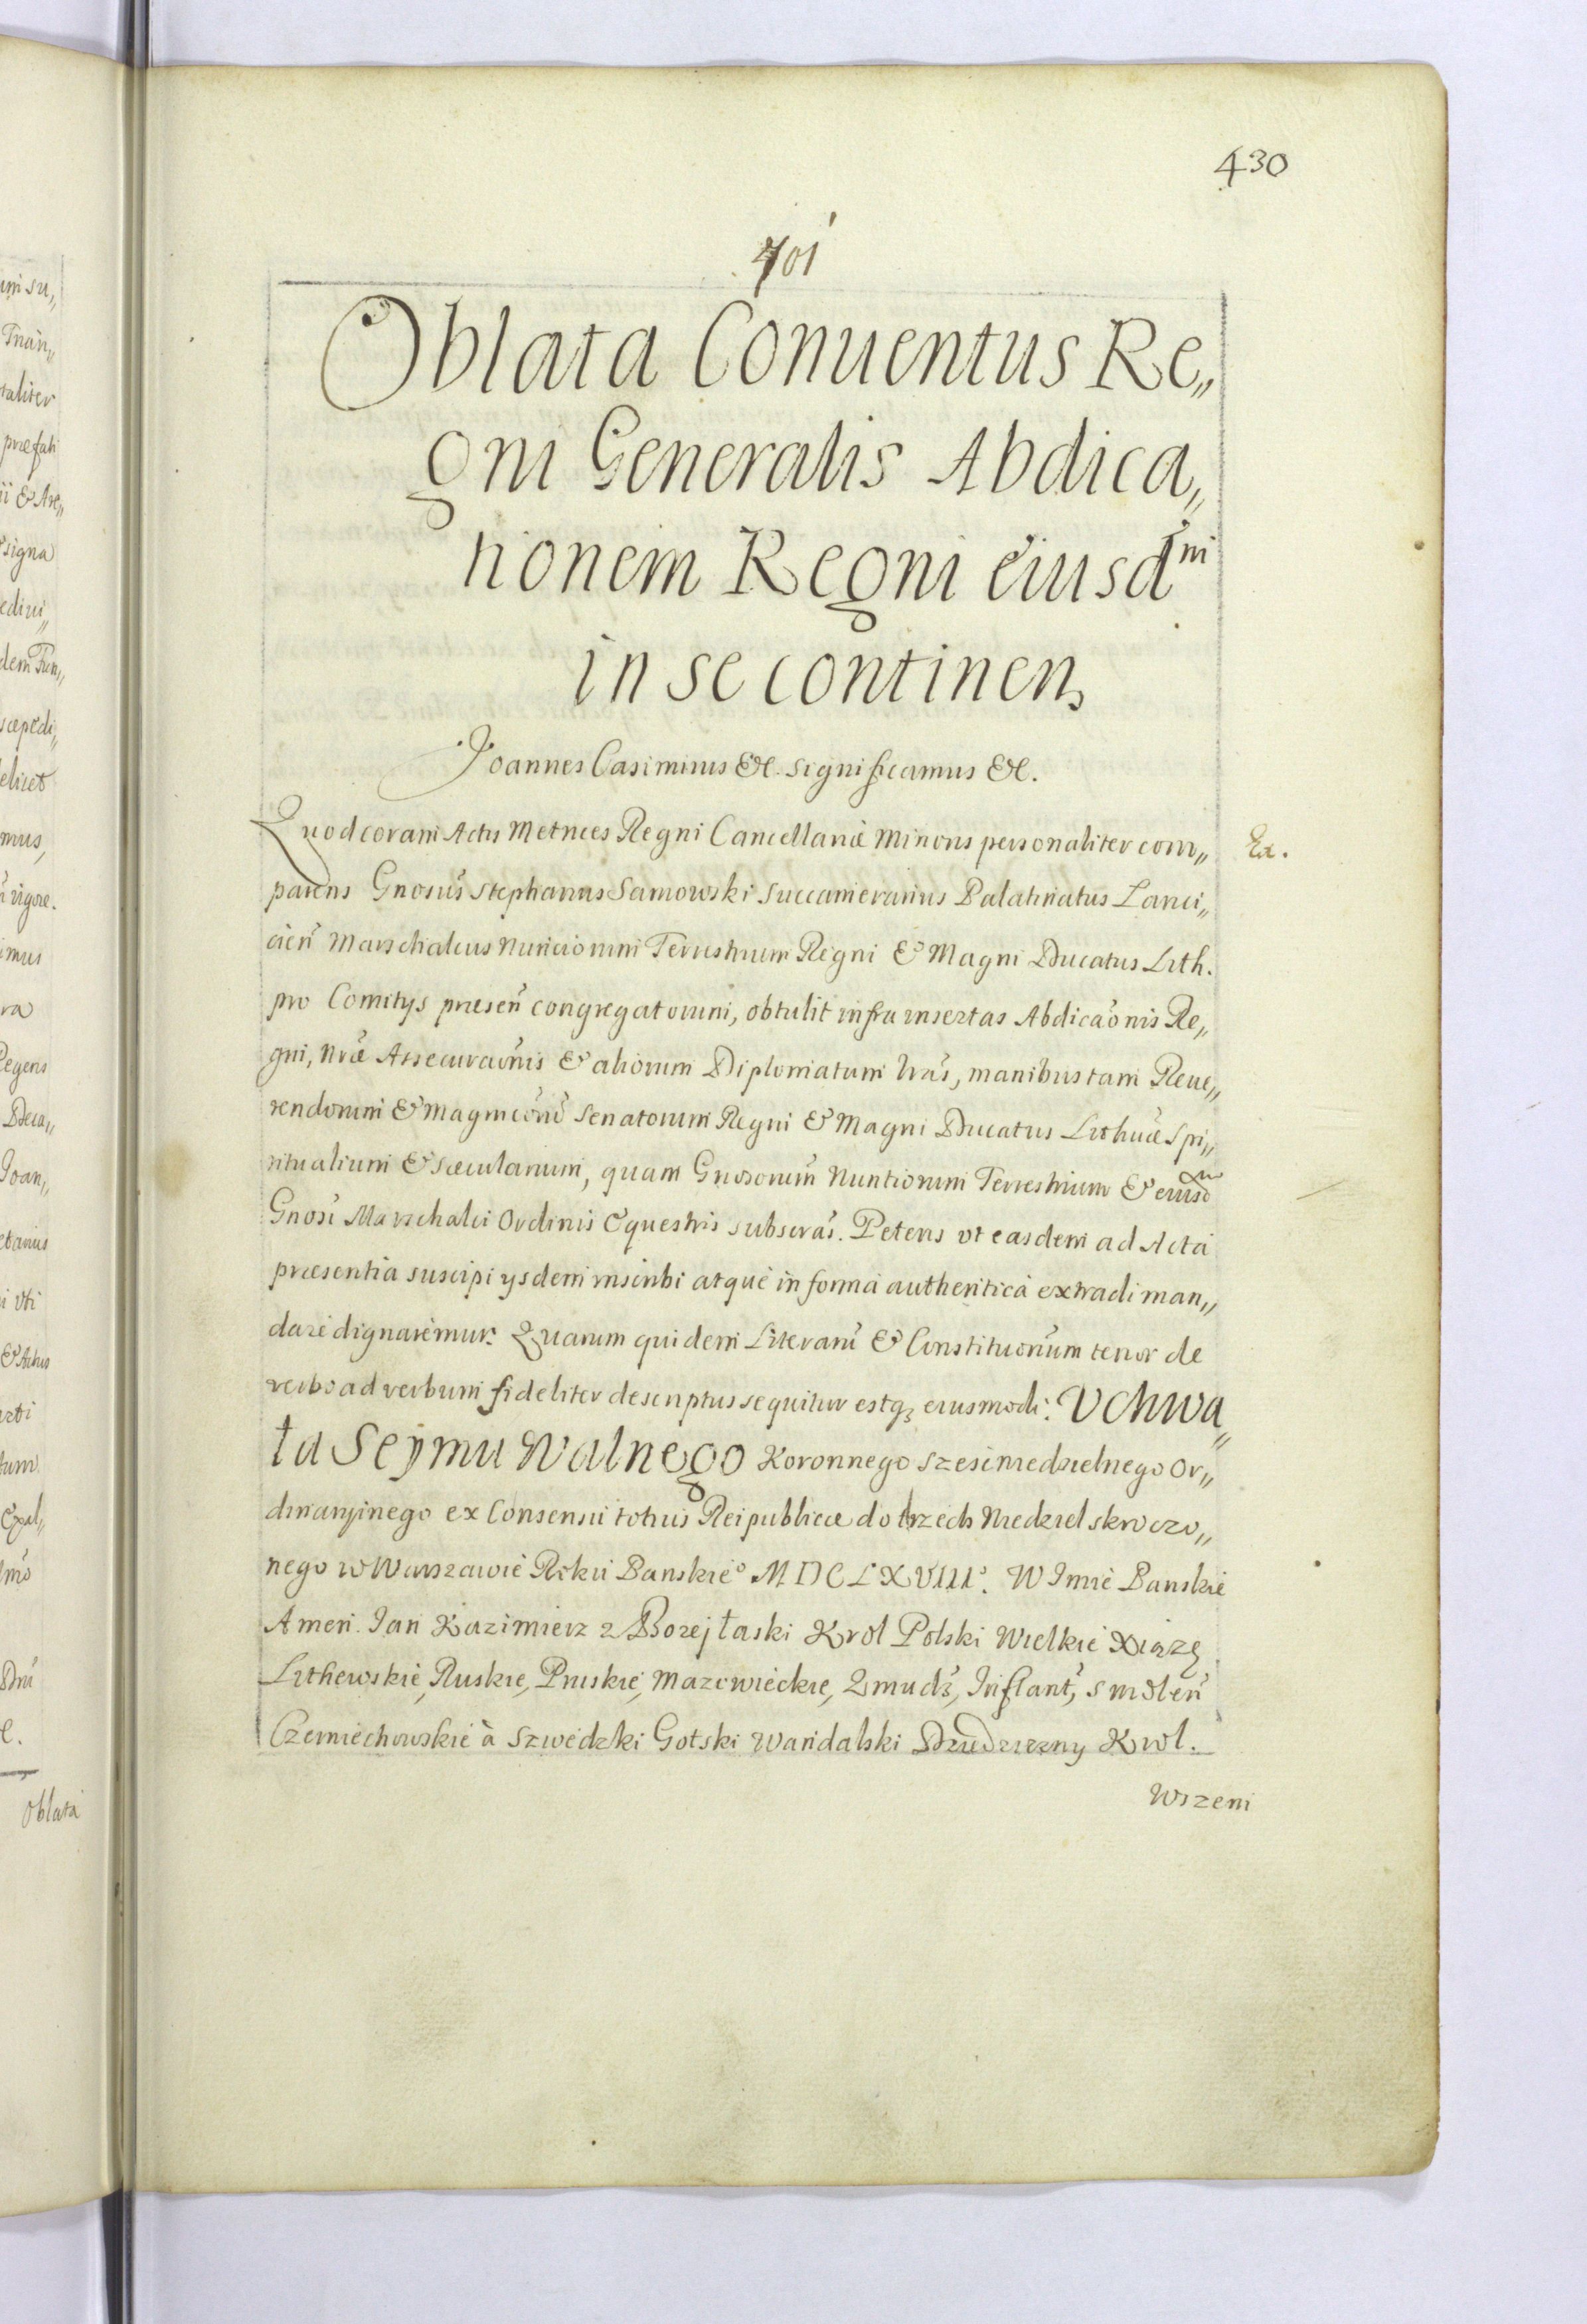 430
401
Oblata Conuentus Re„
gni Generalis Abdica„
tionem Regni eiusd͂m
in se continen,
Joannes Casimirus &c. significamus &c.
Quod coram Actis Metrices Regni Cancellariæ Minoris personaliter com„ Ex.
parens Gnosus Stephanus Sarnowski Succamerarius Palatinatus Lanci„
cień Marschalcus Nunciorum Terrestrium Regni & Magni Ducatus Lith.
pro Comitys præseń congregatorum, obtulit infra insertas Abdicaõnis Re„
gni, Nræ Assecuraõnis & aliorum Diplomatum lrãs, manibus tam Reue„
rendorum & Magnicorũ Senatorum Regni & Magni Ducatus Lithuæ Spi„
ritualium & Sæcularium, quam Gnosorum Nuntiorum Terrestrium & eiusd͂m
Gnosi Marschalci Ordinis Equestris subscrãs. Petens vt easdem ad Acta
præsentia suscipi ysdem inscribi atque in forma authentica extradi man„
dare dignaremur. Quarum quidem Literarũ & Constituonum tenor de
verbo ad verbum fideliter descriptus sequitur estq3 eiusmodi. Vchwa„
ła Seymu Walnego Koronnego szescniedzielnego Or„
dinaryinego ex Consensu totius Reipublicæ do trzech Niedziel skroczo„
nego w Warszawie Roku Panskie° MDCLXVIII°. W Imie Panskie
Amen. Jan Kazimierz z Bozej łaski Krol Polski Wielkie Xiąze
Lithewskie, Ruskie, Pruskie, Mazowieckie, Zmudz, Inflant, Smoleń
Czerniechowskie à Szwedzki Gotski Wandalski Dziedziczny Krol.
Wszem
um su„
Tran„
taliter
præfati
ii & Are„
signa
edini„
dem Fun„
sæpedi„
elicet
mus,
vigore.
imus
ra
Regens
Deca„
Joan„
etanus
i vti
& Actus
arti
tum
Exal„
lmo
Dni
e.
Oblata